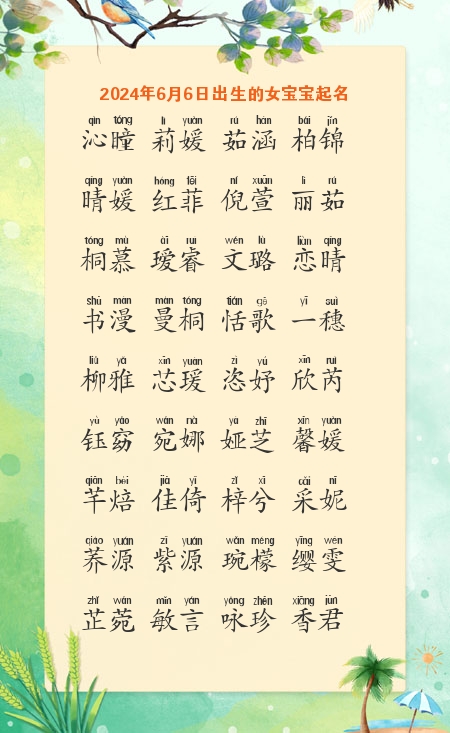 2024年6月6日出生的女宝宝起名
qìn tóng lì yuàn rú hán bǎi jǐn
沁瞳 莉媛 茹涵 柏锦
qíng yuàn hóng fēi ní xuān lì rú
晴媛 红菲 倪萱 丽茹
tóng mù ài ruì wén lù liàn qíng
桐慕 瑷睿 文璐 恋晴
shū màn màn tóng tián gē yī suì
书漫 曼桐 恬歌 一穗
liǔ yǎ xīn yuàn zì yú xīn ruì
柳雅 芯瑗 恣妤 欣芮
yù yǎo wǎn nà yà zhī xīn yuàn
钰窈 宛娜 娅芝 馨媛
qiān bèi jiā yǐ zǐ xī cǎi nī
芊焙 佳倚 梓兮 采妮
qiáo yuán zǐ yuán wǎn méng yīng wén
荞源 紫源 琬檬 缨雯
zhǐ wǎn mǐn yán yǒng zhēn xiāng jūn
芷菀 敏言 咏珍 香君